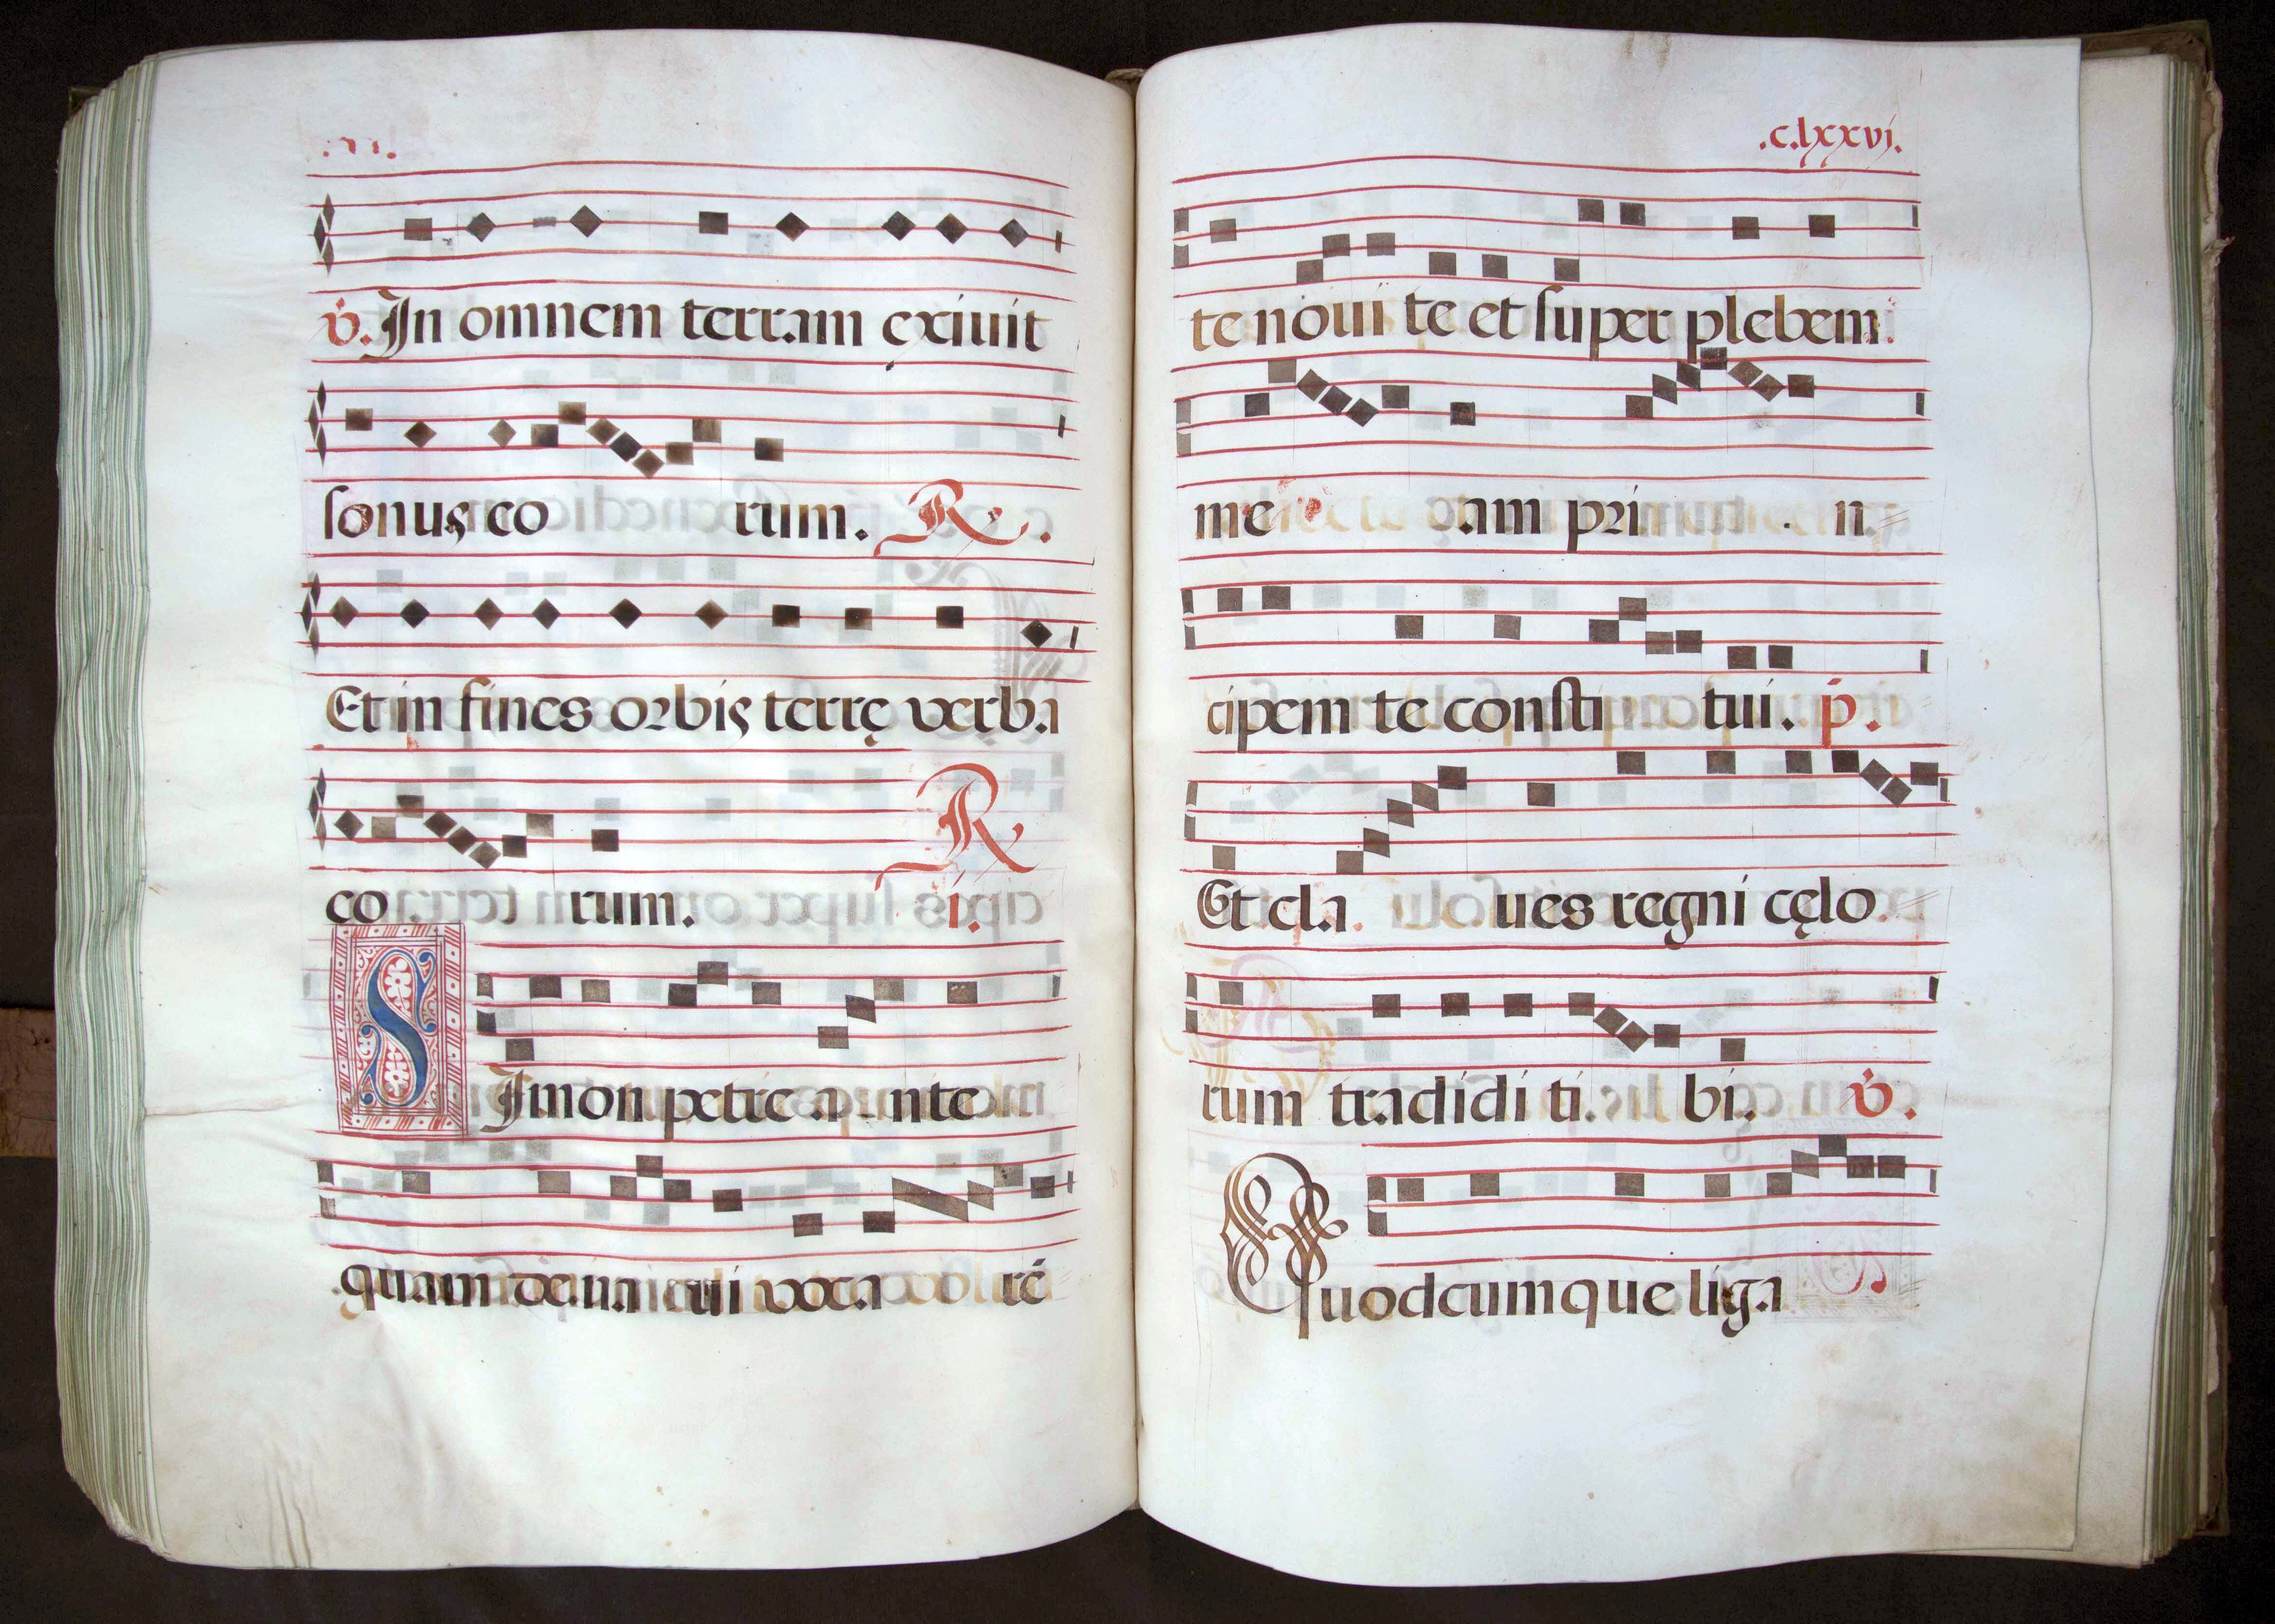 v̇. In omnem terram exiuit
sonus eo rum. R.
Et in fines orbis terrę verba
eo rum. R
i.
SImon petre a nte
quam de na ui voca rē
.c.lxxvj.
te noui te et super plebem
me am pri n
cipem te consti tui. p̄.
Et cla ues regni cęlo
rum tradidi ti bi. v̇.
Quodcumque liga